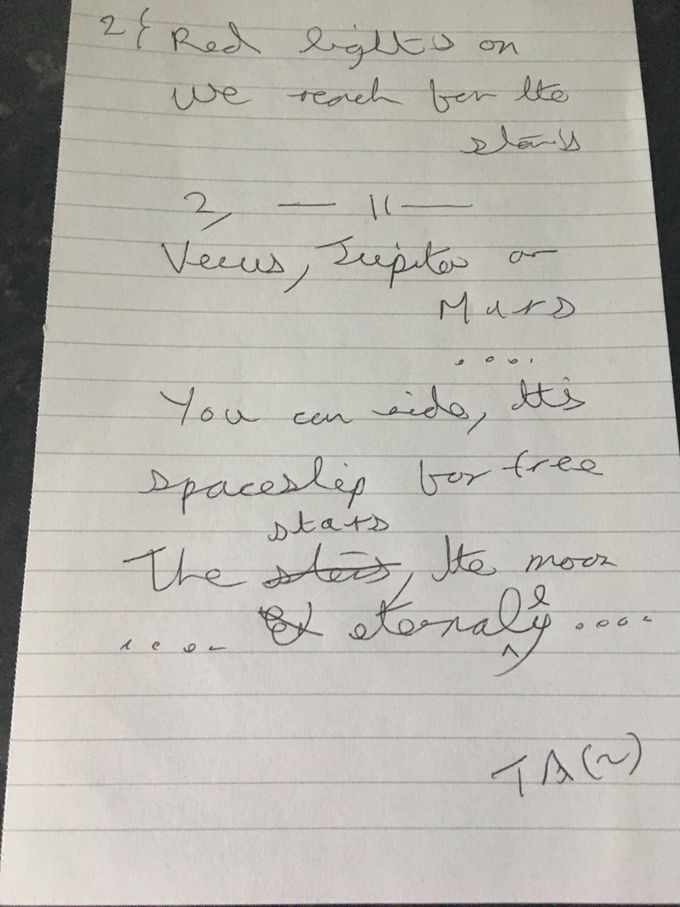 2{ Red lights on
We reach for the
stars
2, — 11 —
Venus, Jupiter or
Mars
....
You can ride, this
spaceship for free
stars
The stars, the moon
.... & eternally ....
TA(~)